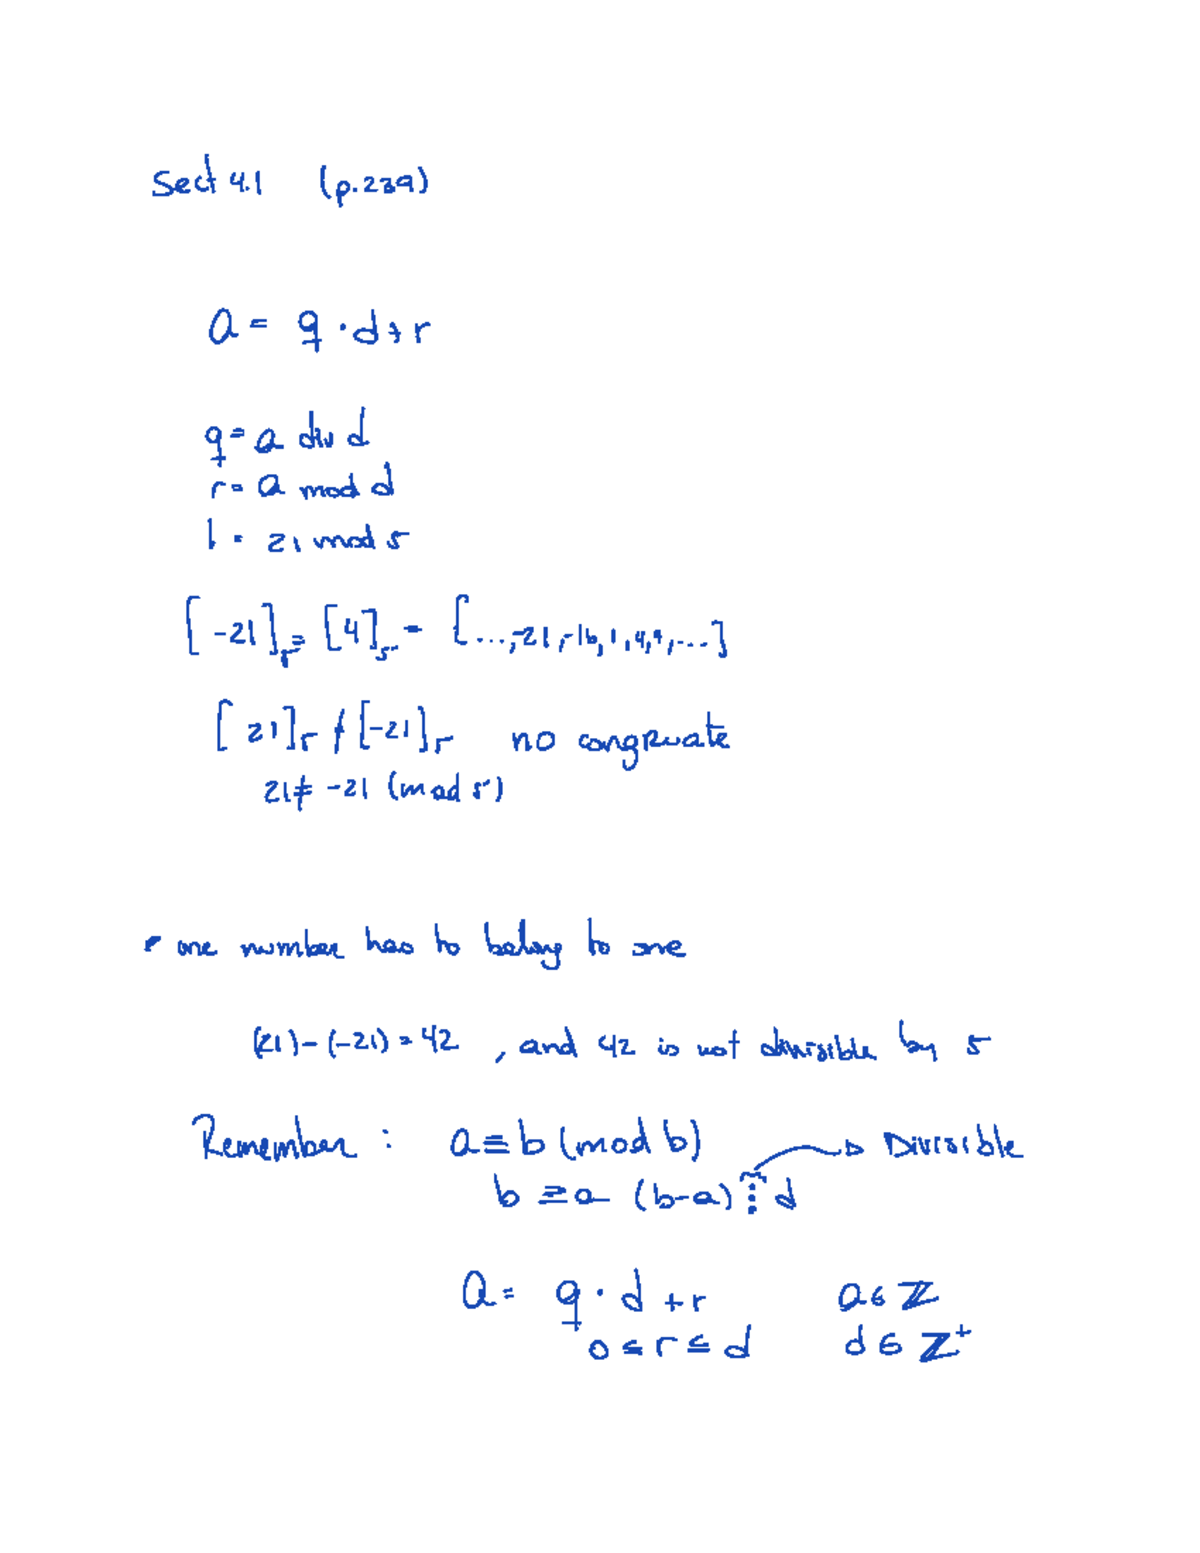 Sect 4.1 (p.239)
a = q · d + r
q = a div d
r = a mod d
1 = 21 mod 5
[-21]₅ = [4]₅ = {..., -21, -16, 1, 4, 9, ...}
[21]₅ ≠ [-21]₅ no congruate
21 ≠ -21 (mod 5)
• one number has to belong to one
(21) - (-21) = 42, and 42 is not divisible by 5
Remember: a ≡ b (mod b)
→ Divisible
b ≡ a (b-a) ⋮ d
a = q · d + r a ∈ ℤ
0 ≤ r ≤ d d ∈ ℤ⁺